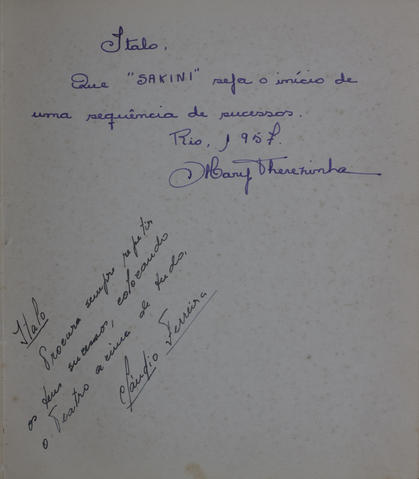 Italo,
Que "SAKINI" seja o início de
uma sequência de sucessos.
Rio, 1957.
Mary Therezinha
Italo
Procura sempre repetir
os teus sucessos, colocando
o Teatro acima de tudo.
Cláudio Ferreira